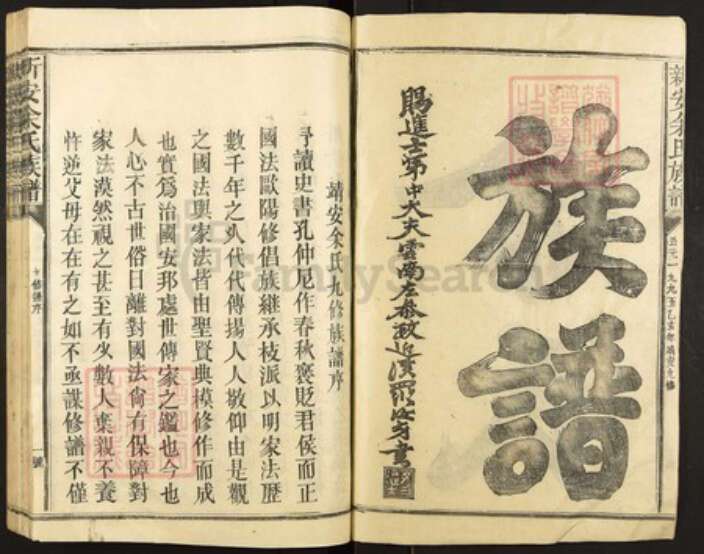 族譜
賜進士第中大夫雲南左參政近濱羅汝芳書
靖安余氏九修族譜序
予讀史書孔仲尼作春秋褒貶君侯而正
國法歐陽修倡族繼承枝派以明家法歷
數千年之久代代傳揚人人敬仰由是觀
之國法與家法皆由聖賢典模修作而成
也實為治國安邦處世傳家之鑑也今也
人心不古世俗日離對國法尚有保障對
家法漠然視之甚至有少數人棄親不養
忤逆父母在在有之如不亟謀修譜不僅
新安余氏族譜
九修譜序
一號
FamilySearch